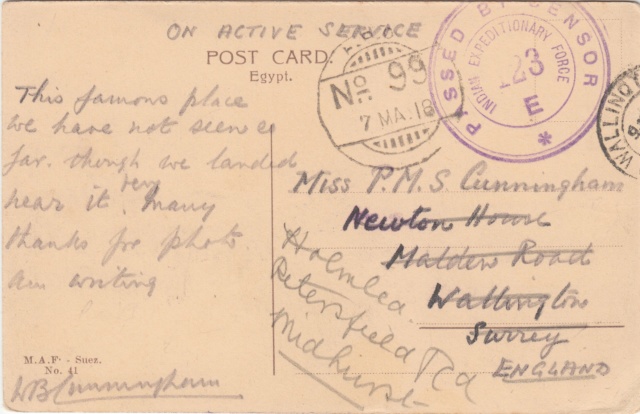 ON ACTIVE SERVICE
POST CARD.
Egypt.
No 99
7 MA.18
PASSED BY CENSOR
INDIAN EXPEDITIONARY FORCE
E
WALLINGTON
This famous place
we have not seen so
far. though we landed
very
near it. Many
thanks for photo.
am writing
M.A.F. - Suez.
No. 41
WB Cunningham
Miss P.M.S. Cunningham
Newton House
Malden Road
Wallington
Surrey
ENGLAND
Holmlea
Petersfield Rd
Midhurst